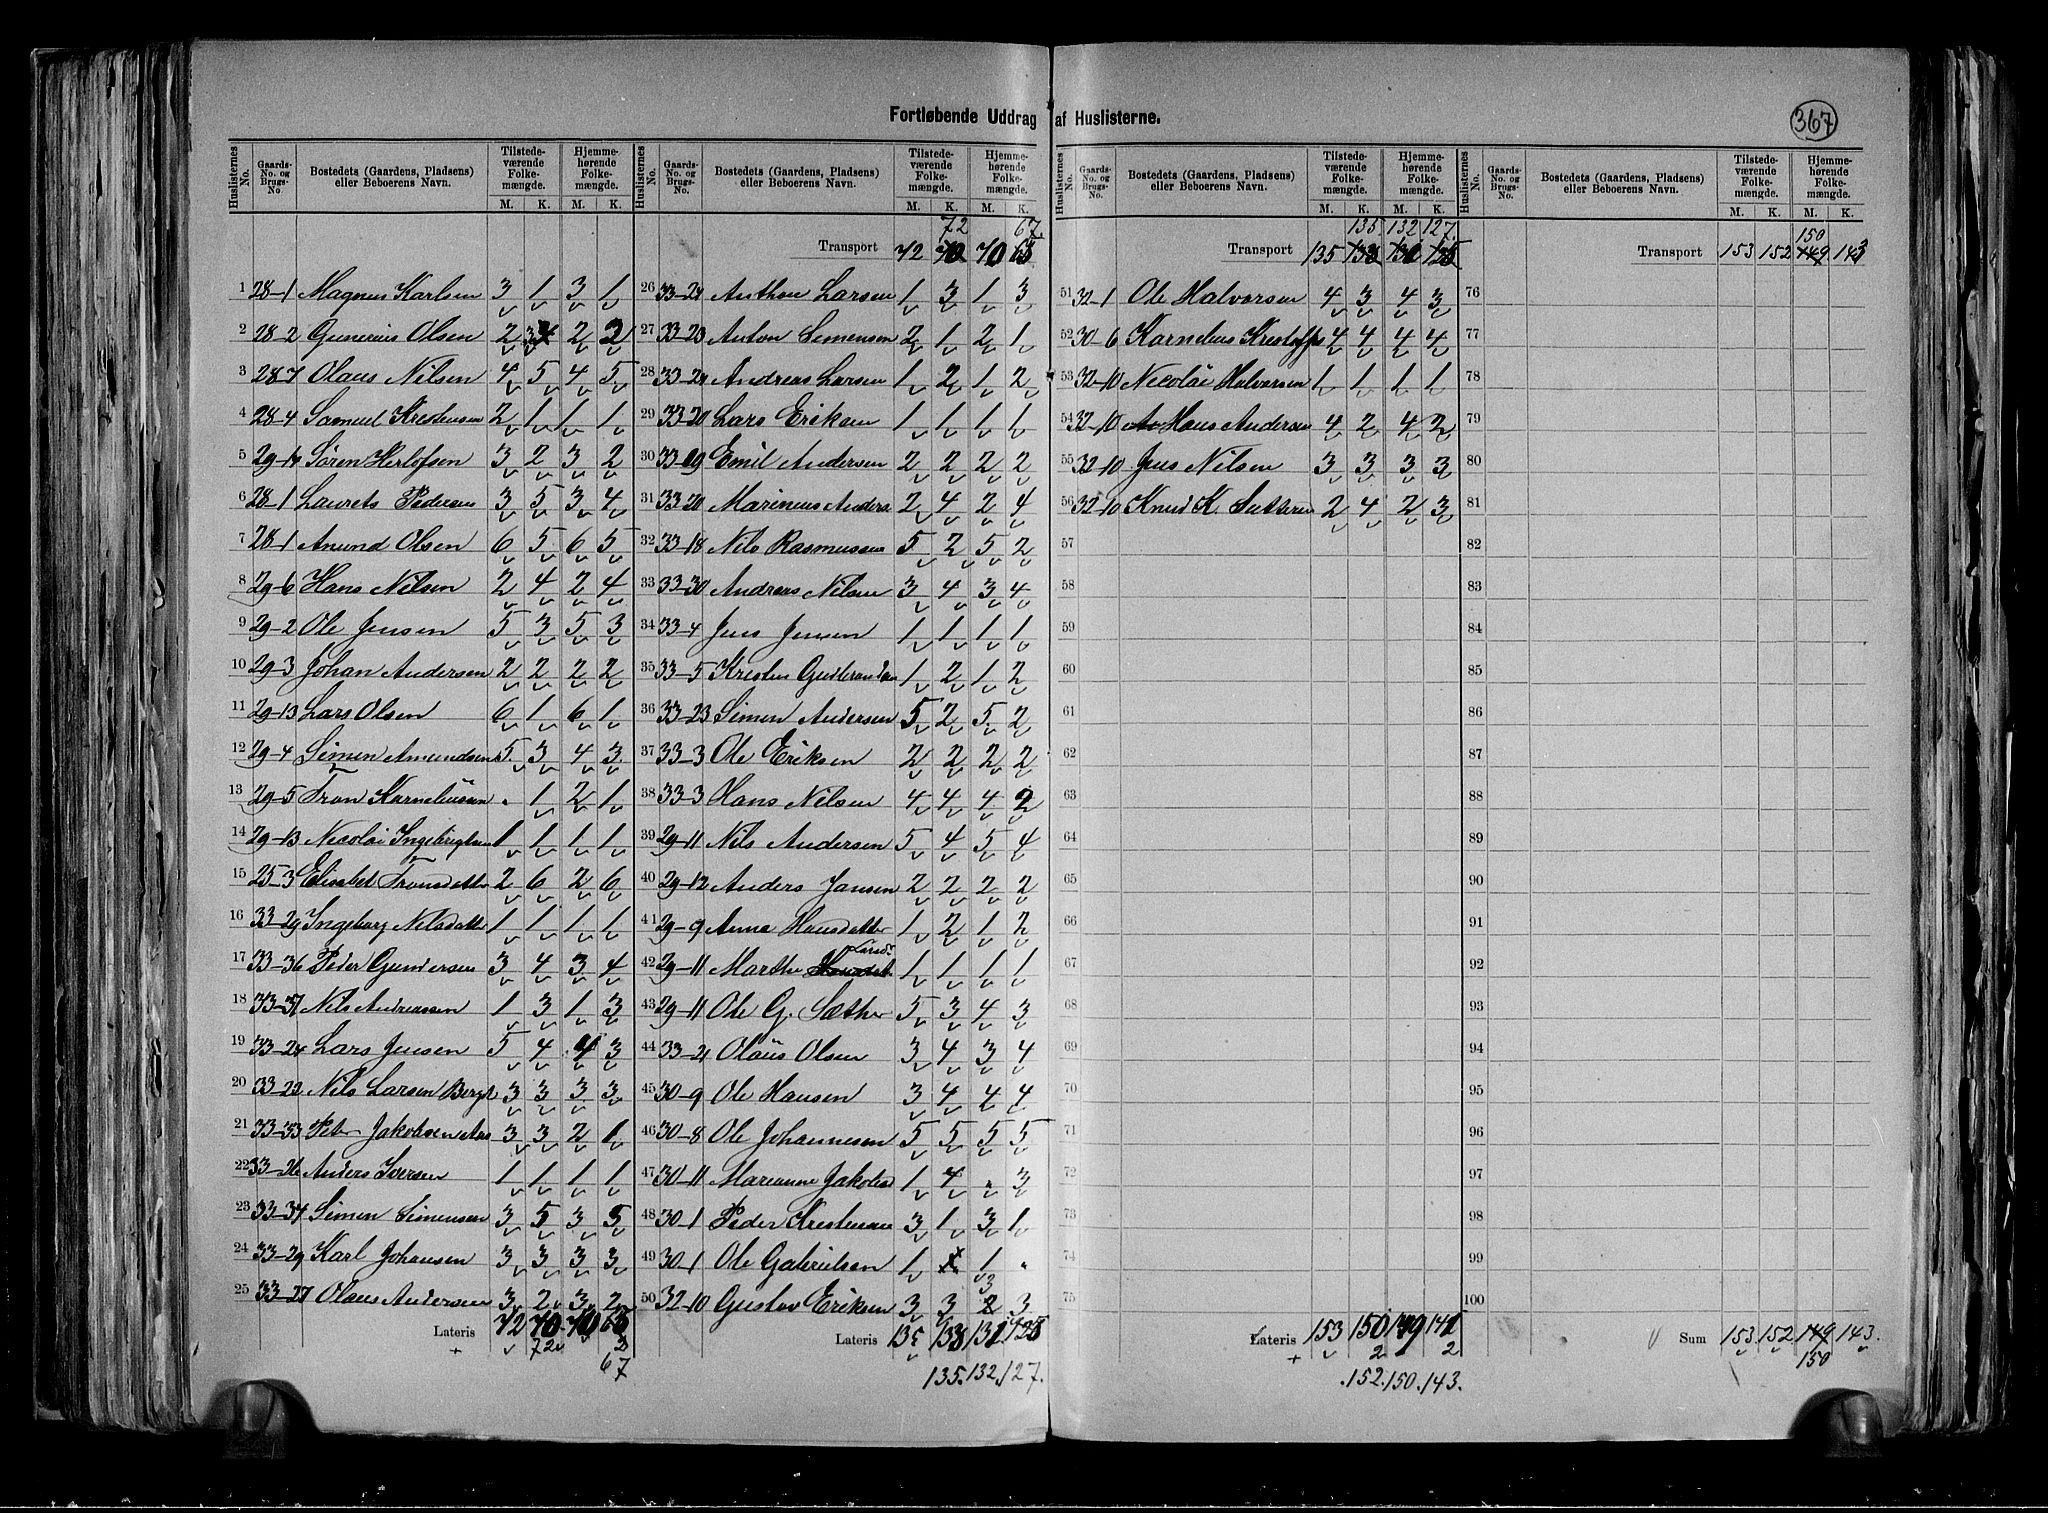 Fortløbende Uddrag af Huslisterne.
367
Huslisternes No. Gaards-No. og Brugs-No. Bostedets (Gaardens, Pladsens) eller Beboerens Navn. Tilstedeværende Folkemængde. M. K. Hjemmehørende Folkemængde. M. K.
1 28-1 Magnus Karlsen 3 1 3 1
2 28-2 Gunerius Olsen 2 3 2 2
3 28-7 Olaus Nilsen 4 5 4 5
4 28-4 Samuel Kristensen 2 1 1 1
5 29-14 Sören Herlofsen 3 2 3 2
6 28-1 Laurets Pedersen 3 5 3 4
7 28-1 Anund Olsen 6 5 6 5
8 29-6 Hans Nilsen 2 4 2 4
9 29-2 Ole Jensen 5 3 5 3
10 29-3 Johan Andersen 2 2 2 2
11 29-13 Lars Olsen 6 1 6 1
12 29-4 Simen Amundsen 5 3 4 3
13 29-5 Tron Karneliusen " 1 2 1
14 29-13 Nicolai Ingebrigtsen 1 1 1 1
15 25-3 Elisabet Tronsdatter 2 6 2 6
16 33-29 Ingeborg Nilsdatter 1 1 1 1
17 33-36 Peder Gundersen 3 4 3 4
18 33-37 Nils Andreassen 1 3 1 3
19 33-24 Lars Jensen 5 4 4 3
20 33-22 Nils Larsen 3 3 3 3
21 33-33 Peter Jakobsen 3 3 2 1
22 33-26 Anders Iversen 1 1 1 1
23 33-34 Simon Simensen 3 5 3 5
24 33-29 Karl Johansen 3 3 3 3
25 33-27 Olaus Andersen 3 2 3 2
Lateris 72 70 70 65
+ 72 2
67
Huslisternes No. Gaards-No. og Brugs-No. Bostedets (Gaardens, Pladsens) eller Beboerens Navn. Tilstedeværende Folkemængde. M. K. Hjemmehørende Folkemængde. M. K.
72 67.
Transport 72 70 70 65
26 33-24 Anthon Larsen 1 3 1 3
27 33-23 Anton Simensen 2 1 2 1
28 33-24 Andreas Larsen 1 2 1 2
29 33-20 Lars Eriksen 1 1 1 1
30 33-19 Emil Andersen 2 2 2 2
31 33-20 Marinius Anders 2 4 2 4
32 33-18 Nils Rasmussen 5 2 5 2
33 33-30 Andreas Nilsen 3 4 3 4
34 33-4 Jens Jensen 1 1 1 1
35 33-5 Kristen 1 2 1 2
36 33-23 Simen Andersen 5 2 5 2
37 33-3 Ole Eriksen 2 2 2 2
38 33-3 Hans Nilsen 4 4 4 2
39 29-11 Nils Andersen 5 4 5 4
40 29-12 Anders Jansen 2 2 2 2
41 29-9 Anna Hansdatter 1 2 1 2
42 29-11 Marthe Larsdr 1 1 1 1
43 29-11 Ole G. Sæther 5 3 4 3
44 33-21 Olaüs Olsen 3 4 3 4
45 30-9 Ole Hansen 3 4 4 4
46 30-8 Ole Johannesen 5 5 5 5
47 30-11 Marianne Jakobsd 1 4 " 3
48 30-1 Peder Kristensen 3 1 3 1
49 30-1 Ole Gabrielsen 1 x 1 "
3
50 32-10 Gustav Eriksen 3 3 2 3
Lateris 135 133 131 125
135. 132. 127.
Huslisternes No. Gaards-No. og Brugs-No. Bostedets (Gaardens, Pladsens) eller Beboerens Navn. Tilstedeværende Folkemængde. M. K. Hjemmehørende Folkemængde. M. K.
135 132 127.
Transport 135 133 131 125
51 32-1 Ole Halvorsen 4 3 4 3
52 30-6 Karnelius Kristoffs 4 4 4 4
53 32-10 Nicolai Halvorsen 1 1 1 1
54 32-10 Hans Andersen 4 2 4 2
55 32-10 Jens Nilsen 3 3 3 3
56 32-10 Knud K. 2 4 2 3
57
58
59
60
61
62
63
64
65
66
67
68
69
70
71
72
73
74
75
Lateris 153 150 149 141
+ 2 1 2
152. 150. 143.
Huslisternes No. Gaards-No. og Brugs-No. Bostedets (Gaardens, Pladsens) eller Beboerens Navn. Tilstedeværende Folkemængde. M. K. Hjemmehørende Folkemængde. M. K.
150
Transport 153 152 149 143
76
77
78
79
80
81
82
83
84
85
86
87
88
89
90
91
92
93
94
95
96
97
98
99
100
Sum 153 152 149 143.
150